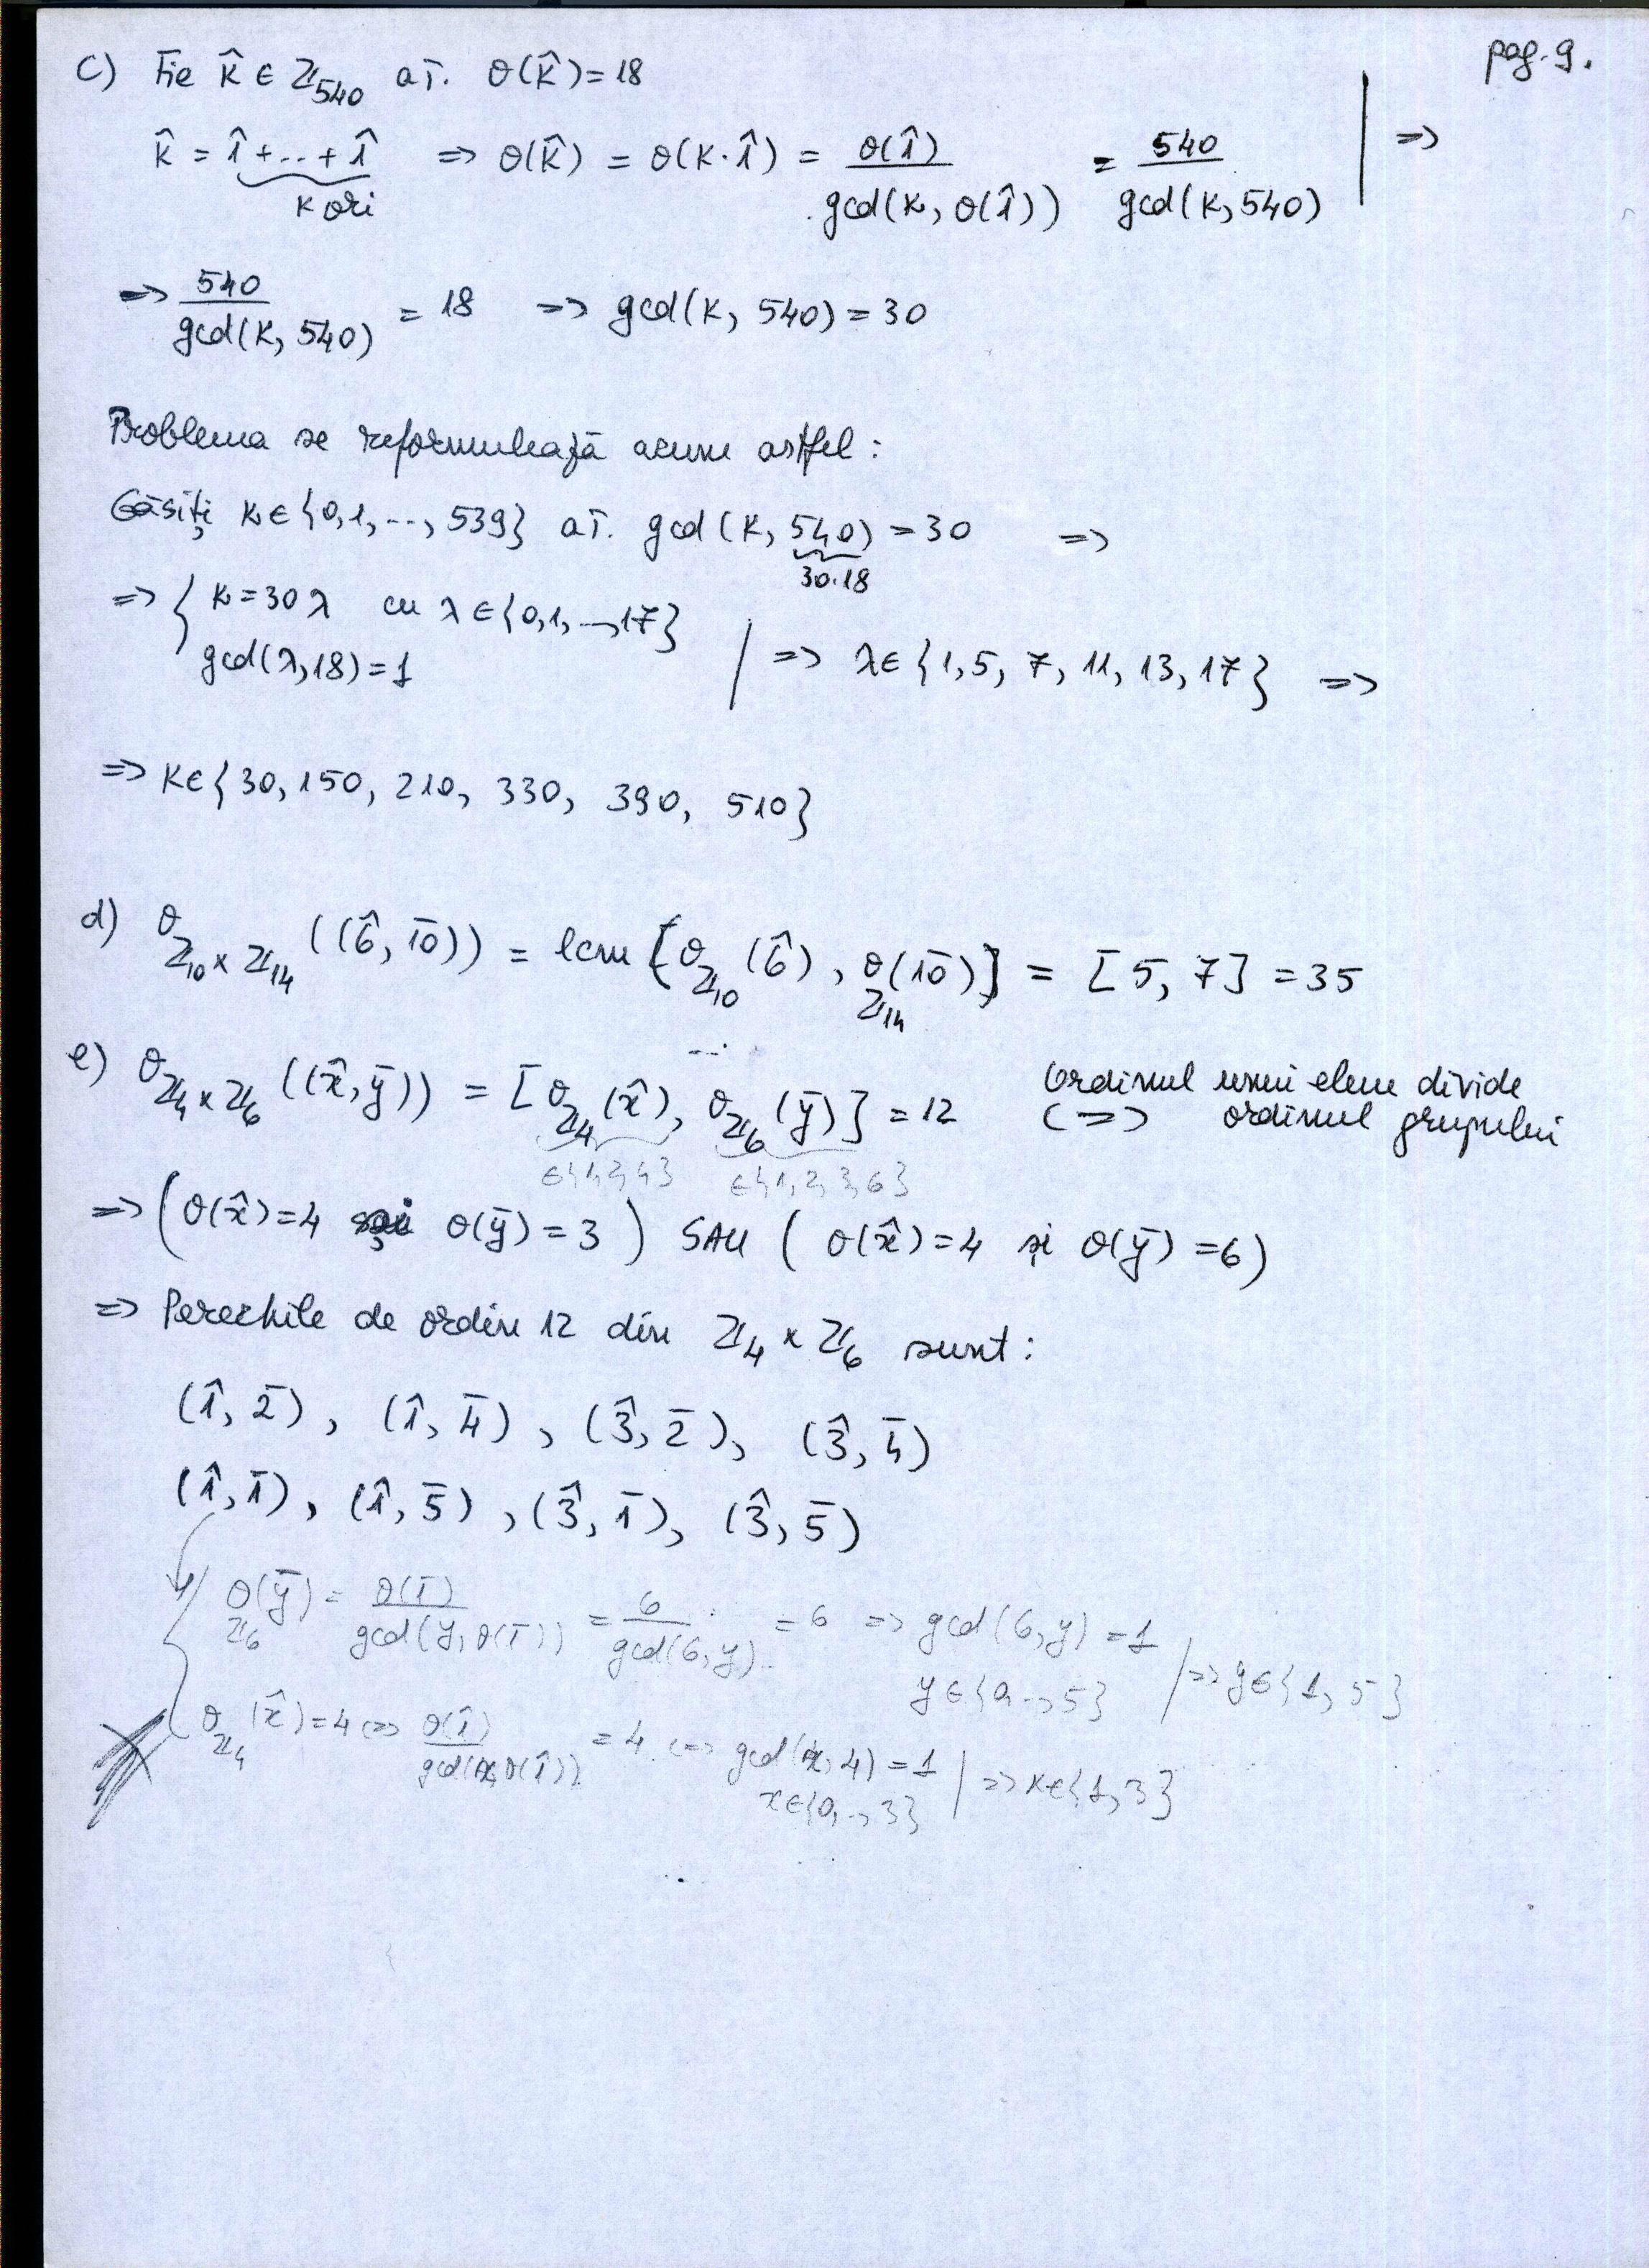 pag. 9.
c) Fie k̂ ∈ ℤ₅₄₀ aî. θ(k̂) = 18
k̂ = 1̂ + ... + 1̂ => θ(k̂) = θ(k·1̂) = θ(1̂) / gcd(k, θ(1̂)) = 540 / gcd(k, 540) | =>
k ori
=> 540 / gcd(k, 540) = 18 => gcd(k, 540) = 30
Problema se reformulează acum astfel:
Găsiți k ∈ {0, 1, ..., 539} aî. gcd(k, 540) = 30 =>
30·18
=> { k = 30λ cu λ ∈ {0, 1, ..., 17}
gcd(λ, 18) = 1 | => λ ∈ {1, 5, 7, 11, 13, 17} =>
=> k ∈ {30, 150, 210, 330, 390, 510}
d) θ_ℤ₁₀×ℤ₁₄ ((6̂, 1̅0̅)) = lcm [θ_ℤ₁₀ (6̂), θ_ℤ₁₄ (1̅0̅)] = [5, 7] = 35
e) θ_ℤ₄×ℤ₆ ((x̂, y̅)) = [θ_ℤ₄ (x̂), θ_ℤ₆ (y̅)] = 12 <=> Ordinul unui elem divide ordinul grupului
∈ {1, 2, 4} ∈ {1, 2, 3, 6}
=> (θ(x̂) = 4 și θ(y̅) = 3) SAU (θ(x̂) = 4 și θ(y̅) = 6)
=> Perechile de ordin 12 din ℤ₄ × ℤ₆ sunt:
(1̂, 2̅), (1̂, 4̅), (3̂, 2̅), (3̂, 4̅)
(1̂, 1̅), (1̂, 5̅), (3̂, 1̅), (3̂, 5̅)
θ_ℤ₆ (y̅) = θ(1̅) / gcd(y, θ(1̅)) = 6 / gcd(6, y) = 6 => gcd(6, y) = 1
y ∈ {0, .., 5} | => y ∈ {1, 5}
θ_ℤ₄ (x̂) = 4 <=> θ(1̂) / gcd(x, θ(1̂)) = 4 <=> gcd(x, 4) = 1
x ∈ {0, .., 3} | => x ∈ {1, 3}